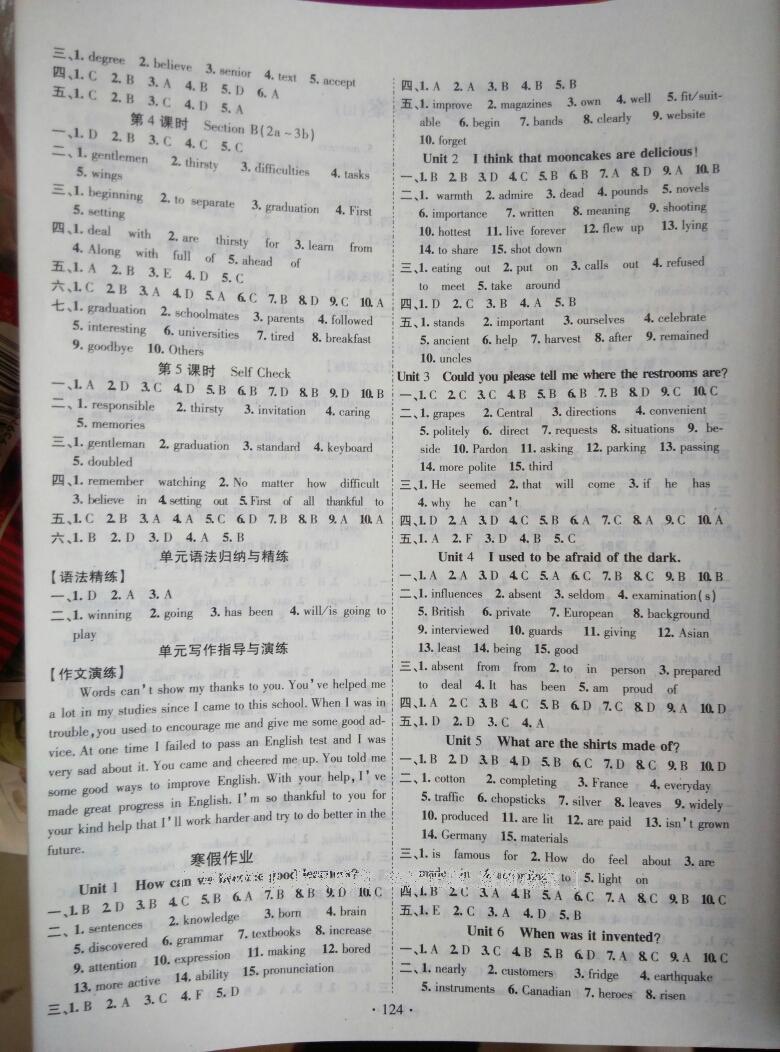 三、1. degree 2. believe 3. senior 4. text 5. accept
四、1. C 2. B 3. A 4. B 5. D 6. A
五、1. C 2. B 3. C 4. D 5. A
第 4 课时 Section B(2a～3b)
一、1. D 2. B 3. C 4. C 5. C
二、1. gentlemen 2. thirsty 3. difficulties 4. tasks
5. wings
三、1. beginning 2. to separate 3. graduation 4. First
5. setting
四、1. deal with 2. are thirsty for 3. learn from
4. Along with full of 5. ahead of
五、1. A 2. B 3. E 4. D 5. C
六、1. C 2. B 3. A 4. D 5. A 6. C 7. B 8. D 9. C 10. A
七、1. graduation 2. schoolmates 3. parents 4. followed
5. interesting 6. universities 7. tired 8. breakfast
9. goodbye 10. Others
第 5 课时 Self Check
一、1. A 2. D 3. C 4. D 5. B 6. B 7. D 8. B 9. D 10. B
二、1. responsible 2. thirsty 3. invitation 4. caring
5. memories
三、1. gentleman 2. graduation 3. standard 4. keyboard
5. doubled
四、1. remember watching 2. No matter how difficult
3. believe in 4. setting out 5. First of all thankful to
五、1. C 2. B 3. A 4. A 5. C 6. D 7. B 8. B 9. A 10. A
六、1. B 2. D 3. D 4. A 5. B
单元语法归纳与精练
【语法精练】
一、1. D 2. A 3. A
二、1. winning 2. going 3. has been 4. will/is going to
play
单元写作指导与演练
【作文演练】
Words can't show my thanks to you. You've helped me
a lot in my studies since I came to this school. When I was in
trouble, you used to encourage me and give me some good ad-
vice. At one time I failed to pass an English test and I was
very sad about it. You came and cheered me up. You told me
some good ways to improve English. With your help, I've
made great progress in English. I'm so thankful to you for
your kind help that I'll work harder and try to do better in the
future.
寒假作业
Unit 1 How can we become good learners?
一、1. B 2. D 3. B 4. C 5. B 6. A 7. B 8. B 9. D 10. C
二、1. sentences 2. knowledge 3. born 4. brain
5. discovered 6. grammar 7. textbooks 8. increase
9. attention 10. expression 11. making 12. bored
13. more active 14. ability 15. pronunciation
三、1. B 2. A 3. C 4. F 5. D
四、1. A 2. A 3. B 4. B 5. B
五、1. improve 2. magazines 3. own 4. well 5. fit/suit-
able 6. begin 7. bands 8. clearly 9. website
10. forget
Unit 2 I think that mooncakes are delicious!
一、1. B 2. B 3. D 4. C 5. B 6. B 7. A 8. D 9. A 10. B
二、1. warmth 2. admire 3. dead 4. pounds 5. novels
6. importance 7. written 8. meaning 9. shooting
10. hottest 11. live forever 12. flew up 13. lying
14. to share 15. shot down
三、1. eating out 2. put on 3. calls out 4. refused
to meet 5. take around
四、1. D 2. C 3. B 4. A 5. B
五、1. stands 2. important 3. ourselves 4. celebrate
5. ancient 6. help 7. harvest 8. after 9. remained
10. uncles
Unit 3 Could you please tell me where the restrooms are?
一、1. C 2. C 3. C 4. B 5. B 6. B 7. B 8. D 9. C 10. C
二、1. grapes 2. Central 3. directions 4. convenient
5. politely 6. direct 7. requests 8. situations 9. be-
side 10. Pardon 11. asking 12. parking 13. passing
14. more polite 15. third
三、1. He seemed 2. that will come 3. if he has
4. why he can't
四、1. D 2. A 3. D 4. C 5. B 6. A 7. C 8. A 9. C 10. A
五、1. A 2. F 3. D 4. B 5. C
Unit 4 I used to be afraid of the dark.
一、1. A 2. A 3. D 4. C 5. A 6. C 7. B 8. C 9. B 10. B
二、1. influences 2. absent 3. seldom 4. examination(s)
5. British 6. private 7. European 8. background
9. interviewed 10. guards 11. giving 12. Asian
13. least 14. being 15. good
三、1. absent from from 2. to in person 3. prepared
to deal 4. It has been 5. am proud of
四、1. A 2. C 3. B 4. C 5. B 6. D 7. C 8. B 9. A 10. D
五、1. D 2. D 3. C 4. A
Unit 5 What are the shirts made of?
一、1. B 2. D 3. D 4. C 5. B 6. C 7. D 8. C 9. B 10. D
二、1. cotton 2. completing 3. France 4. everyday
5. traffic 6. chopsticks 7. silver 8. leaves 9. widely
10. produced 11. are lit 12. are paid 13. isn't grown
14. Germany 15. materials
三、1. is famous for 2. How do feel about 3. are
made in 4. according to 5. light on
四、1. B 2. C 3. A 4. B 5. A 6. C 7. A 8. C 9. B 10. D
五、1. E 2. C 3. A 4. D 5. B
Unit 6 When was it invented?
一、1. A 2. D 3. C 4. B 5. B 6. D 7. A 8. C 9. A 10. C
二、1. nearly 2. customers 3. fridge 4. earthquake
5. instruments 6. Canadian 7. heroes 8. risen
· 124 ·